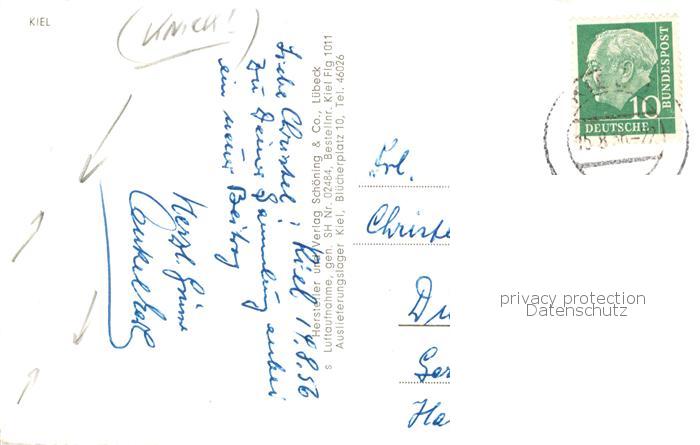 KIEL
(KNICK!)
Kiel 14.8.56
Liebe Christel,
zu Deiner Sammlung anbei
ein neuer Beitrag
Herzl. Grüsse
Onkel
Hersteller und Verlag Schöning & Co., Lübeck
s Luftaufnahme, gen. SH Nr. 02484, Bestellnr. Kiel Flg 1011
Auslieferungslager Kiel, Blücherplatz 10, Tel. 46026
10
DEUTSCHE
BUNDESPOST
15.8.56
Frl.
Christe
Du
Ha
privacy protection
Datenschutz